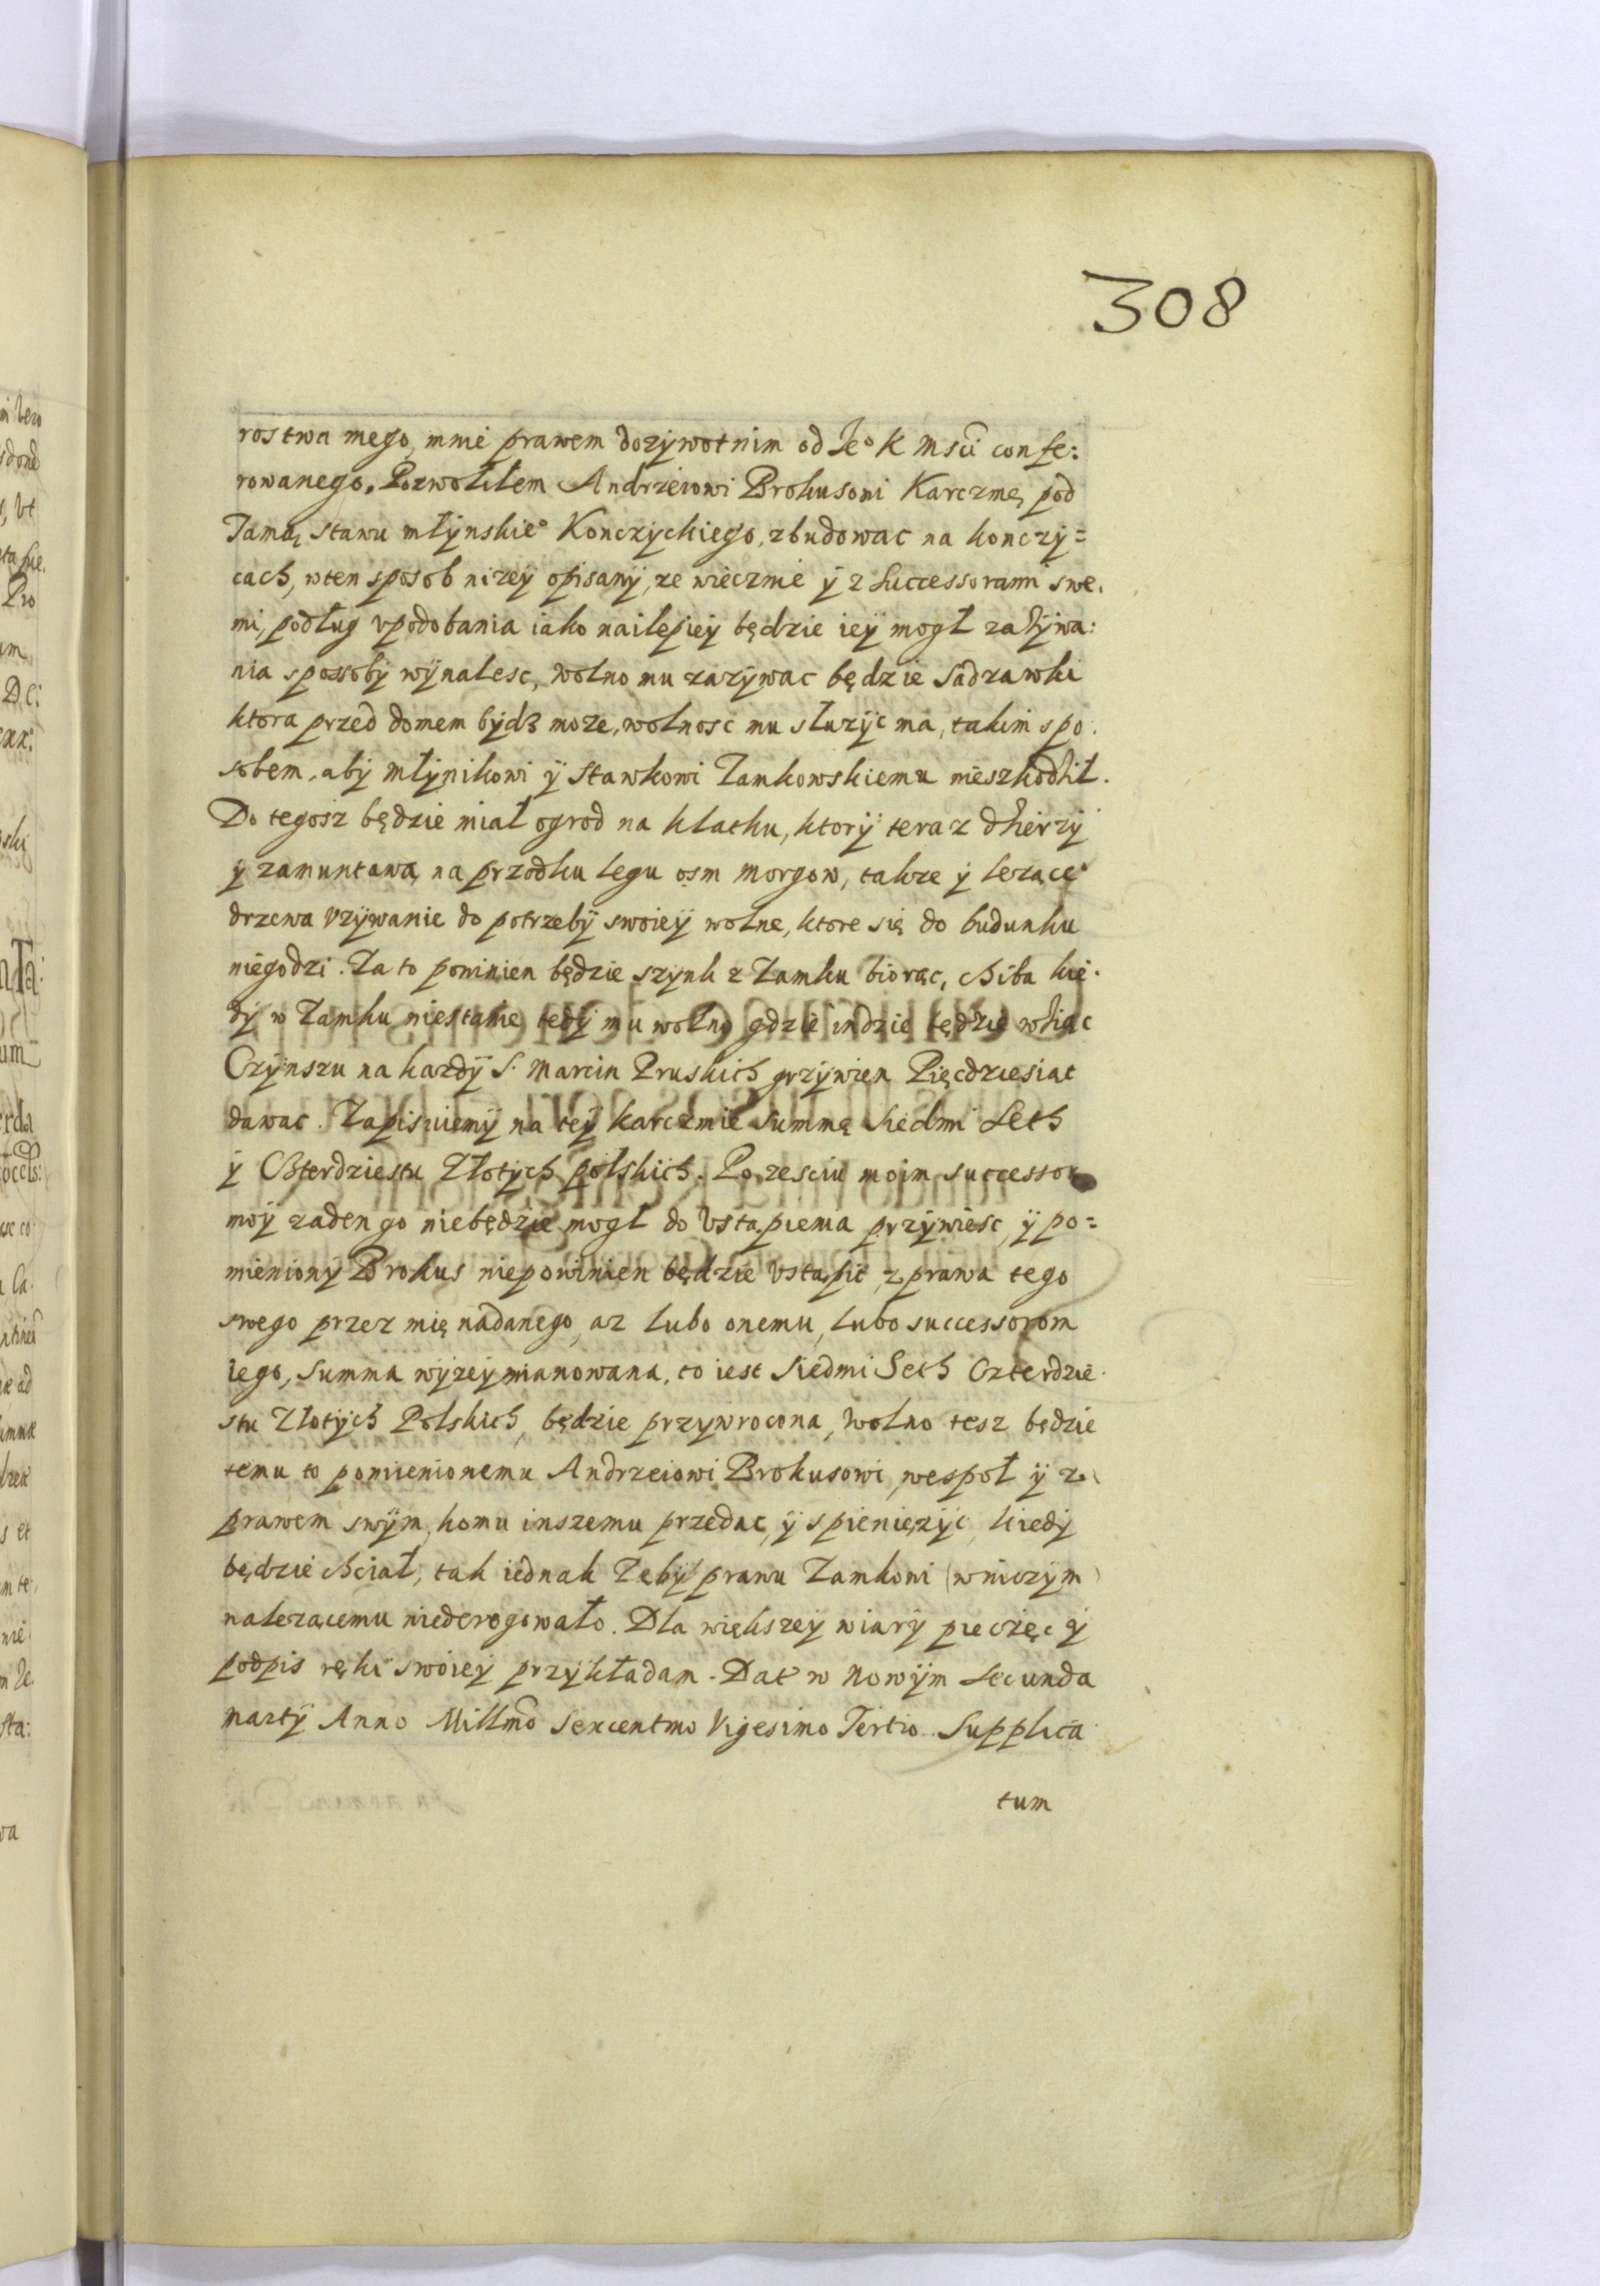 308
rostwa mego, mnie prawem dozywotnim od Je° K Msci confe:
rowanego. Pozwoliłem Andrzeiowi Brokusowi Karczmę pod
Tamą Stawu młÿnskie° Konczyckiego, zbudowac na konczÿ=
cach, wten sposob nizeÿ opisanÿ, ze wiecznie ÿ z Successorami swe.
mi, podług vpodobania iako nailepieÿ będzie ieÿ mogł zażÿwa:
nia sposobÿ wÿnalesc, wolno mu zazÿwac będzie Sadzawki
ktora przed domem bÿdz moze, wolnosc mu słuzÿc ma, takim spo:
sobem, abÿ młÿnikowi ÿ Stawkowi Zamkowskiemu nieszkodził.
Do tegosz będzie miał ogrod na klatku, ktorÿ teraz dzierzÿ
ÿ zamuntawą na przodku legu osm morgow, takze ÿ lezące°
drzewa vzÿwanie do potrzebÿ swoieÿ wolne, ktore się do budunku
niegodzi. Za to powinien będzie szÿnk z Zamku biorąc, chiba kie.
dÿ w Zamku niestanie, tedÿ mu wolno gdzie indzie będzie wziąc
Czÿnszu na kazdÿ S. Marcin Pruskich grzÿwien Pięcdziesiat
dawac. Zapisuiemÿ na teÿ karczmie Summę siedmi Seth
ÿ Czterdziestu Złotÿch polskich. Po zesciu moim successor
moÿ zaden go niebędzie mogł do Vstąpienia przÿwiesc, ÿ po=
mienionÿ Brokus niepowinien będzie Vstąpic, z prawa tego
swego przez mię nadanego, az lubo onemu, lubo successorom
iego, Summa wÿzeÿ mianowana, to iest Siedmi Seth Czterdzie.
stu Złotÿch Polskich, będzie przÿwrocona, Wolno tesz będzie
temu to pomienionemu Andrzeiowi Brokusowi, wespoł ÿ z
prawem swÿm, komu inszemu przedac, ÿ spienięzÿc, kiedÿ
będzie chciał, tak iednak Zebÿ prawu Zamkowi (wniczÿm)
nalezącemu niederogowało. Dla większeÿ wiarÿ pieczęc ÿ
podpis ręki swoieÿ przÿkładam. Dat w Nowÿm Secunda
martÿ Anno Millmo Sexcentmo Vigesimo Tertio. Supplica
tum